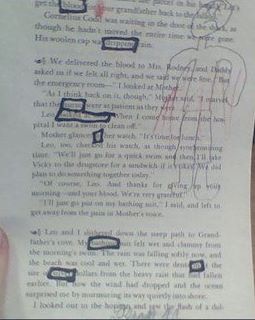 get the blood
our grandfather back to the
Cornelius Cook was waiting in the door of the shack, as
though he hadn't moved the entire time we were gone.
His woolen cap was dripping rain.
We delivered the blood to Mrs. Rodney and Daddy
asked us if we felt all right, and we said we were fine. "But
the emergency room—" I looked at Mother.
"As I think back on it, though," Mother said, "I marvel
that the were as patient as they were.
Leo When I come home from the hos-
pital I want a swim to clean off."
Mother glanced at her watch. "It's time for lunch."
Leo, too, checked his watch, as though synchronizing
time. "We'll just go for a quick swim and then I'll take
Vicky to the drugstore for a sandwich if it's okay. We did
plan to do something together today."
"Of course, Leo. And thanks for giving up your
morning—and your blood. We're very grateful."
"I'll just go put on my bathing suit," I said, and left to
get away from the pain in Mother's voice.
Leo and I slithered down the steep path to Grand-
father's cove. My bathing suit felt wet and clammy from
the morning's swim. The rain was falling softly now, and
the beach was cool and wet. There were dents in the
size of dollars from the heavy rain that had fallen
earlier. But now the wind had dropped and the ocean
surprised me by murmuring its way quietly into shore.
I looked out to the horizon and saw the flash of a dol-